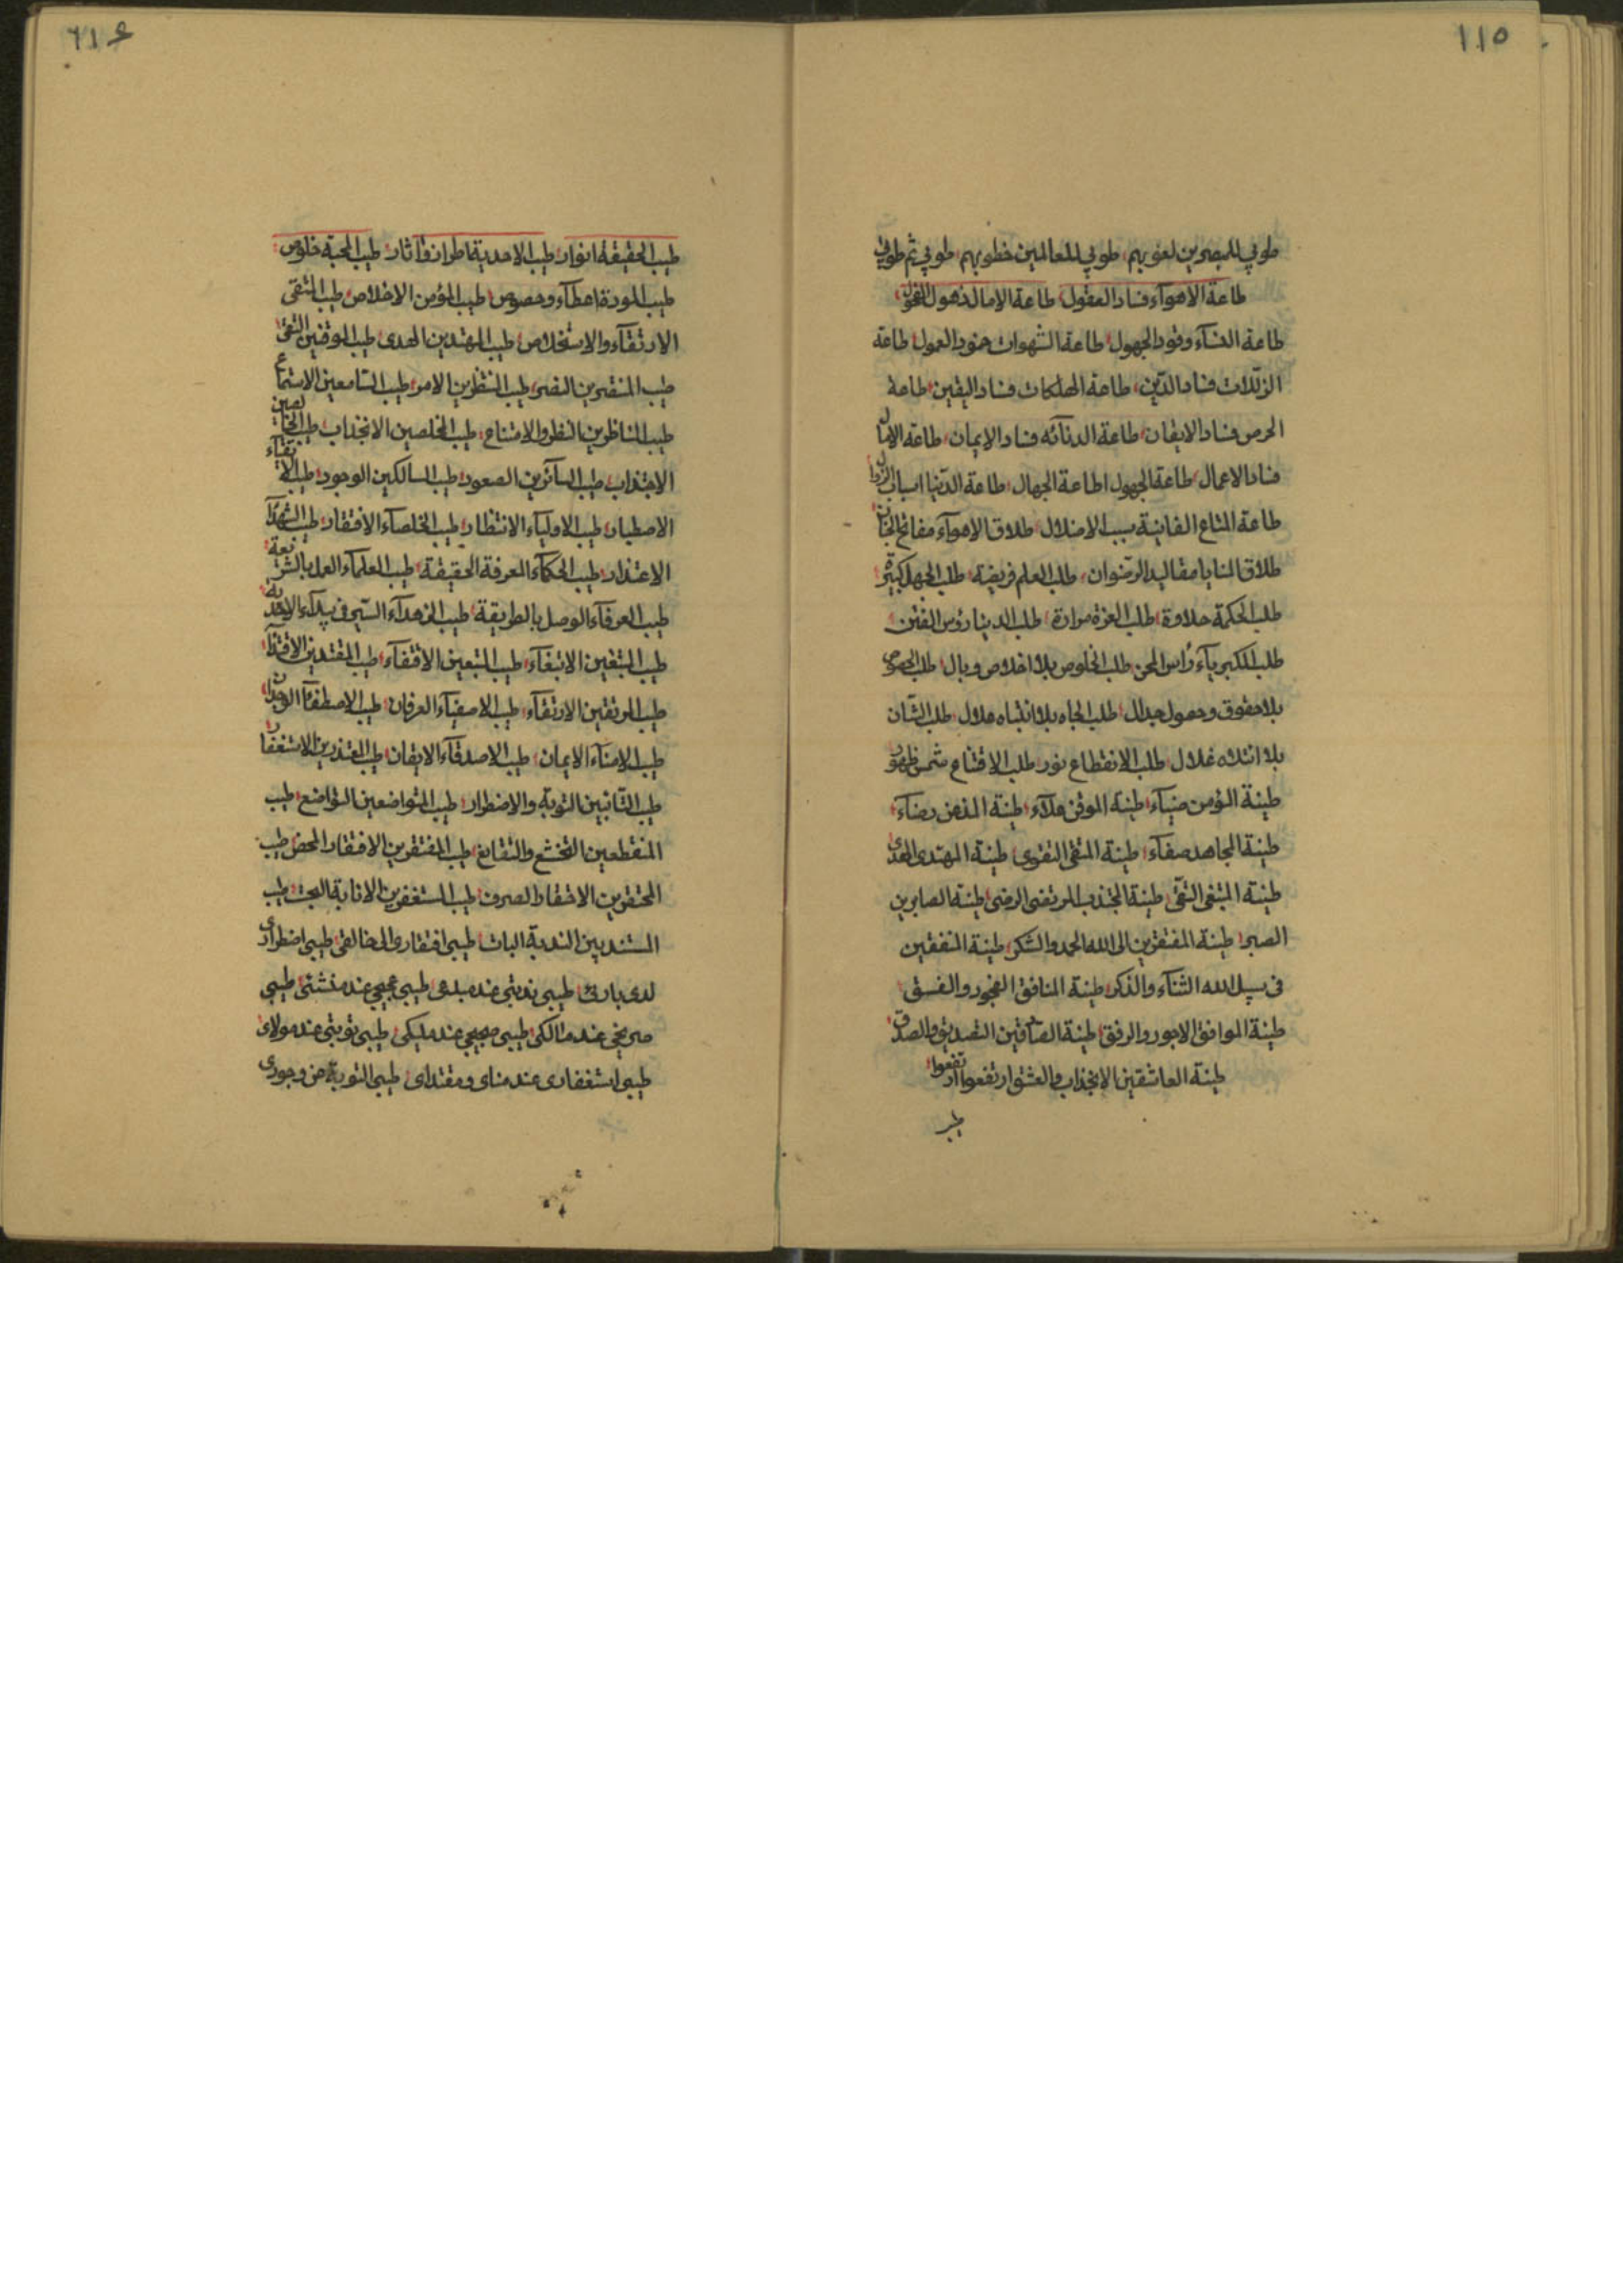 ١١٥
طوبي للمبصرين لغوبهم طوبي للعالمين خطوبهم طوبي ثم طوبي
طاعة الاهوآء فساد العقول طاعة الامال ذهول
طاعة النسآء وقود الجهول طاعة الشهوات خمود العمول طاعة
الزلّات فساد الدّين طاعة الهلكات فساد اليقين طاعة
الحرص فساد الايقان طاعة الدنائه فساد الايمان طاعة
فساد الاعمال طاعة الجهول اطاعة الجهال طاعة الدّنيا اسباب
طاعة المتاع الفانية سبب الاضلال طلاق الاهوآء مفاتح الجنان
طلاق المنايا مقاليد الرّضوان طلب العلم فريضة طلب الجهل
طلب الحكمة حلاوة طلب العزة مرارة طلب الدنيا رؤس الفتن
طلب الكبريآء رُاس المحن طلب الخلوص بلا اخلاص وبال طلب
بلا حقوق وحصول جدال طلب الجاه بلا انتباه ملال طلب الشأن
بلا ائتلاه غلال طلب الانقطاع نور طلب الاقتناع شمس ظهور
طينة المؤمن ضيآء طينة الموقن ملآء طينة المذعن رضآء
طينة المجاهد صفآء طينة المتقى التقوى طينة المهتدى الهدى
طينة المتبغى التقى طينة المجتذب المرتضى الرضى طينة الصابرين
الصبر طينة المفتقرين الى الله الحمد والشكر طينة المنفقين
فى سبيل الله الثنآء والذكر طينة المنافق الفجور والفسق
طينة الموافق الاجور والرفق طينة الصآدقين التصديق والصدق
طينة العاشقين الانجذاب والعشق ارتفعوا ارتفعوا
طيب
١١٦
طيب الحقيقة انوار طيب الاحدية اطراز وآثار طيب المحبة خلوص
طيب المودة اعطآء وحصوص طيب المؤمن الاخلاص طيب المتقى
الارتقآء والاستخلاص طيب المهتدين الهدى طيب الموقنين التقى
طيب المنتصرين النصر طيب المنتظرين الامر طيب السّامعين الاستماع
طيب الناظرين النظر والامتناع طيب المخلصين الانجذاب طيب
الاجتذاب طيب السآئرين الصعود طيب السالكين الوجود طيب
الاصطبار طيب الاوليآء الانتظار طيب الخلصآء الافتقار طيب الشهدآء
الاعتذار طيب الحكمآء المعرفة الحقيقة طيب العلمآء العمل بالشريعة
طيب العرفآء الوصل بالطريقة طيب الزهدآء السّير فى بيدآء الاحدية
طيب المتبغين الابتغآء طيب المتبعين الاقتفآء طيب المقتدين الاقتدآء
طيب المرتقين الارتقآء طيب الاصفيآء العرفان طيب الاصطفآء الوجدان
طيب الامنآء الايمان طيب الاصدقآء الايقان طيب المعتذرين الاستغفار
طيب التائبين التوبة والاضطرار طيب المتواضعين التواضع طيب
المنقطعين التخشع والتقانع طيب المفتقرين الافتقار المحض طيب
المحتقرين الاحتقار الصرف طيب المستغفرين الانابة البحت طيب
المستندبين الندبة البات طيبى افتقارى الى خالقى طيبى اضطرارى
لدى بارئى طيبى ندبتى عند مبدعى طيبى عجيجى عند منشئى طيبى
صريخى عند مالكى طيبى ضجيجى عند مليكى طيبى توبتى عند مولاى
طيبى استغفارى عند مناى ومقتداى طيبى التوبة من وجودى